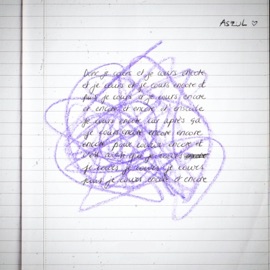 ASZUL ♡
Donc je cours et je cours encore
et je cours et je cours encore et
puis je cours et je cours encore
et encore et encore et ensuite
je cours encore car après ça
je cours encore encore encore
encore pour encore encore et
je cours
je cours je cours je cours
je cours encore et encore